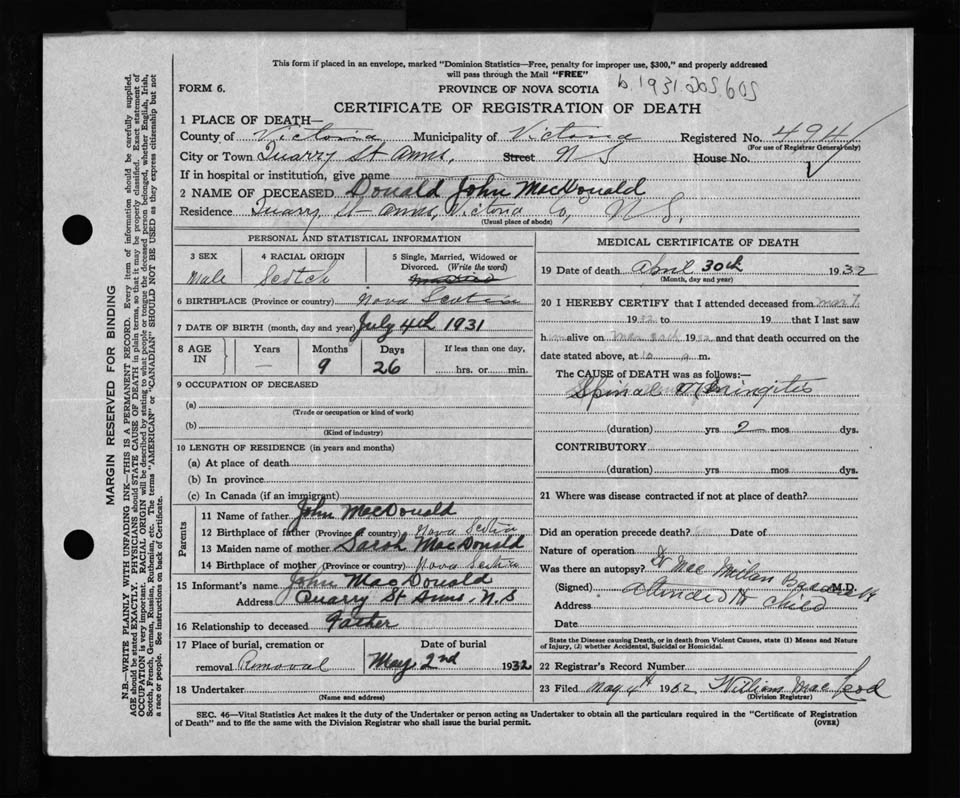 This form if placed in an envelope, marked "Dominion Statistics—Free, penalty for improper use, $300," and properly addressed
will pass through the Mail "FREE"
FORM 6. PROVINCE OF NOVA SCOTIA b. 1931.205605
CERTIFICATE OF REGISTRATION OF DEATH
1 PLACE OF DEATH—
County of Victoria Municipality of Victoria Registered No. 494
(For use of Registrar General only)
City or Town Quarry St Anns, Street N S House No.
If in hospital or institution, give name
2 NAME OF DECEASED Donald John MacDonald
Residence Quarry St Anns, Victoria Co, N S.
(Usual place of abode)
PERSONAL AND STATISTICAL INFORMATION
3 SEX 4 RACIAL ORIGIN 5 Single, Married, Widowed or
Divorced. (Write the word)
Male Scotch
6 BIRTHPLACE (Province or country) Nova Scotia
7 DATE OF BIRTH (month, day and year) July 4th 1931
8 AGE IN Years Months Days If less than one day,
— 9 26 hrs. or min.
9 OCCUPATION OF DECEASED
(a)
(Trade or occupation or kind of work)
(b)
(Kind of industry)
10 LENGTH OF RESIDENCE (in years and months)
(a) At place of death
(b) In province
(c) In Canada (if an immigrant)
Parents
11 Name of father John MacDonald
12 Birthplace of father (Province or country) Nova Scotia
13 Maiden name of mother Sarah MacDonald
14 Birthplace of mother (Province or country) Nova Scotia
15 Informant's name John MacDonald
Address Quarry St Anns, N.S
16 Relationship to deceased Father
17 Place of burial, cremation or Date of burial
removal Removal May 2nd 1932
18 Undertaker
(Name and address)
MEDICAL CERTIFICATE OF DEATH
19 Date of death April 30th 1932
(Month, day and year)
20 I HEREBY CERTIFY that I attended deceased from Mar 7.
1932 to 19 that I last saw
h alive on 1932 and that death occurred on the
date stated above, at 10 a m.
The CAUSE of DEATH was as follows:—
Spinal Meningitis
(duration) yrs 2 mos dys.
CONTRIBUTORY
(duration) yrs mos dys.
21 Where was disease contracted if not at place of death?
Did an operation precede death? Date of
Nature of operation
Was there an autopsy? Dr MacMillan
(Signed) M.D.
attended child
Address
Date
State the Disease causing Death, or in death from Violent Causes, state (1) Means and Nature
of Injury, (2) whether Accidental, Suicidal or Homicidal.
22 Registrar's Record Number
23 Filed May 4th 1932 William MacLeod
(Division Registrar)
SEC. 46—Vital Statistics Act makes it the duty of the Undertaker or person acting as Undertaker to obtain all the particulars required in the "Certificate of Registration
of Death" and to file the same with the Division Registrar who shall issue the burial permit. (OVER)
MARGIN RESERVED FOR BINDING
N.B.—WRITE PLAINLY WITH UNFADING INK—THIS IS A PERMANENT RECORD. Every item of information should be carefully supplied.
AGE should be stated EXACTLY. PHYSICIANS should STATE CAUSE OF DEATH in plain terms, so that it may be properly classified. Exact statement of
OCCUPATION is very important. RACIAL ORIGIN will be described by stating to what people or tongue the deceased person belonged, whether English, Irish,
Scotch, French, German, Russian, Ruthenian, etc. The terms "AMERICAN" or "CANADIAN" SHOULD NOT BE USED as they express citizenship but not
a race or people. See instructions on back of Certificate.